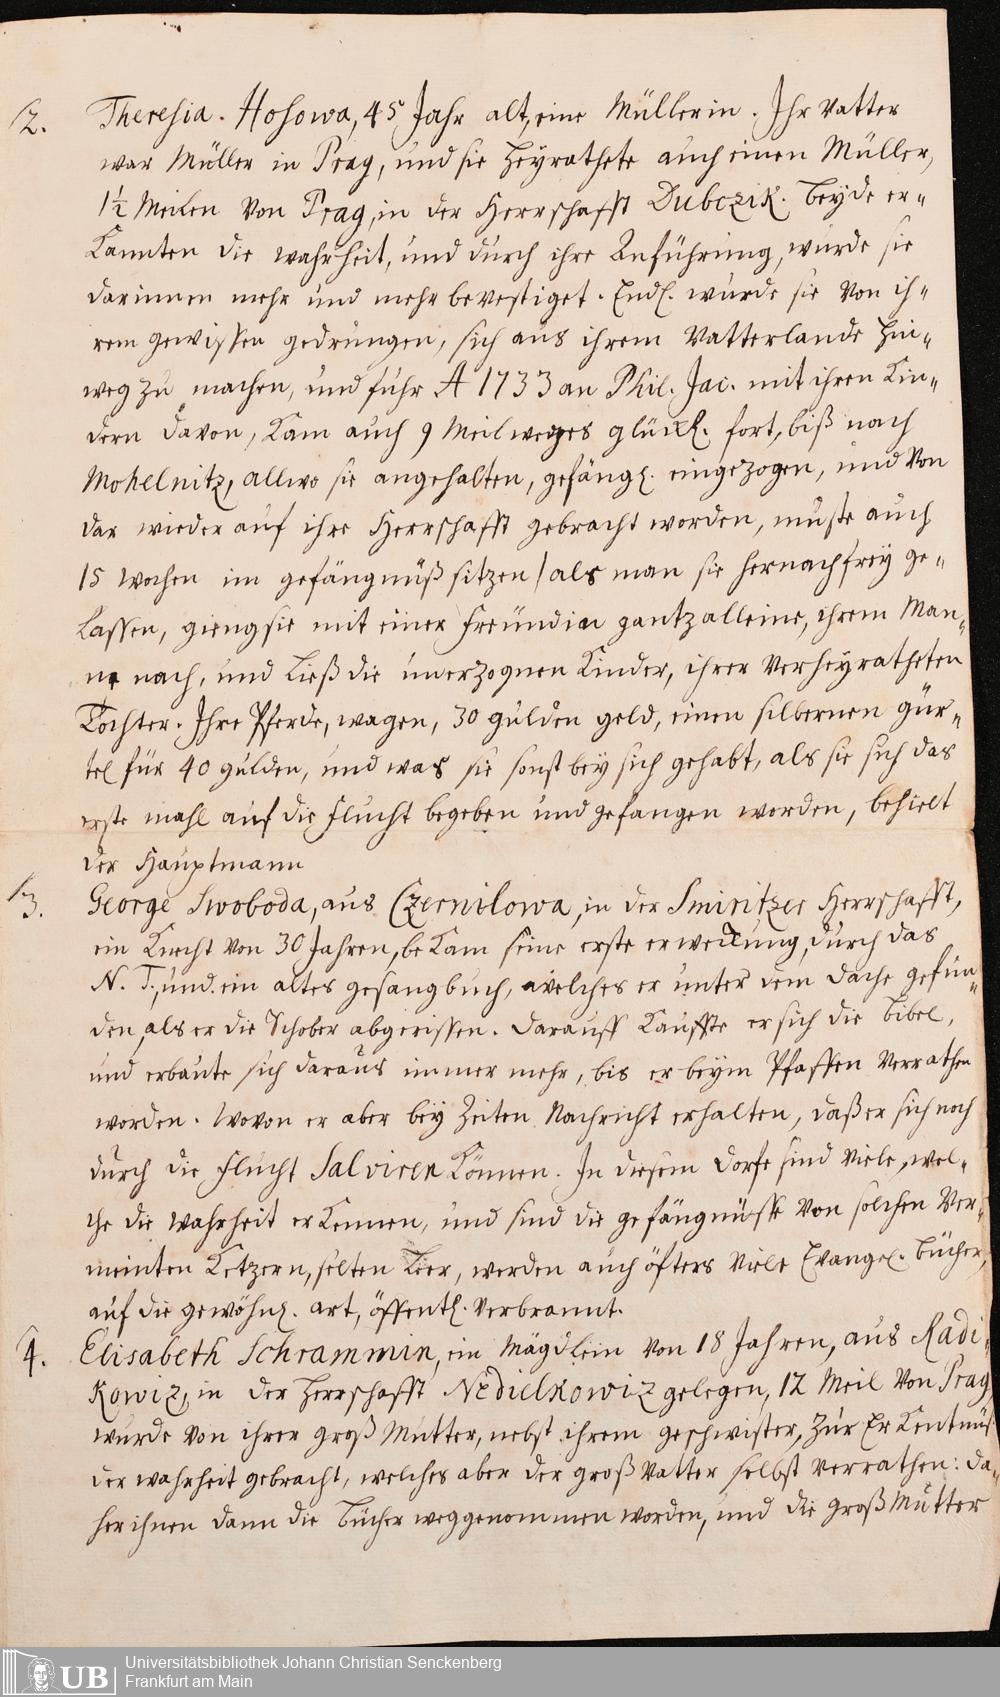 2. Theresia Hosowa, 45 Jahr alt, eine Müllerin. Ihr Vatter
war Müller in Prag, und sie heyrathete auch einen Müller,
1½ Meilen von Prag, in der Herrschafft Dubczik. beyde er-
kannten die wahrheit, und durch ihre Anführung, wurde sie
darinnen mehr und mehr bevestiget. Endl. wurde sie von ih-
rem gewissen gedrungen, sich aus ihrem Vatterlande hin-
weg zu machen, und fuhr A 1733 an Phil. Jac. mit ihren Kin-
dern davon, kam auch 9 Meilweges glückl. fort, biß nach
Mohelnitz, allwo sie angehalten, gefängl. eingezogen, und von
dar wieder auf ihre Herrschafft gebracht worden, muste auch
15 Wochen im gefängnüß sitzen / als man sie hernach frey ge-
lassen, gieng sie mit einer Freündin gantz alleine, ihrem Man-
ne nach, und ließ die unerzognen Kinder, ihrer verheyratheten
Tochter. Ihre Pferde, wagen, 30 gulden geld, einen silbernen gür-
tel für 40 gulden, und was sie sonst bey sich gehabt, als sie sich das
erste mahl auf die Flucht begeben und gefangen worden, behielt
der Hauptmann
3. George Swoboda, aus Czernilowa, in der Smiritzer Herrschafft,
ein Knecht von 30 Jahren, bekam seine erste erweckung, durch das
N. T., und ein altes gesangbuch, welches er unter dem dache gefun-
den, als er die Schober abgerissen. darauff kauffte er sich die bibel,
und erbaute sich daraus immer mehr, bis er beym Pfaffen verrathen
worden. Wovon er aber bey Zeiten Nachricht erhalten, daß er sich noch
durch die Flucht Salviren können. In diesem dorfe sind viele, wel-
che die Wahrheit erkennen, und sind die gefängnüsse von solchen ver-
meinten Ketzern, selten leer, werden auch öfters viele Evangel. bücher,
auf die gewöhnl. art, öffentl. verbrannt.
4. Elisabeth Schrammin, ein Mägdlein von 18 Jahren, aus Radi-
kowiz, in der Herrschafft Nedielkowiz gelegen, 12 Meil von Prag
wurde von ihrer groß Mutter, nebst ihrem geschwister, zur Erkentnüß
der wahrheit gebracht, welches aber der groß Vatter selbst verrathen: da-
her ihnen dann die bücher weggenommen worden, und die groß Mutter
UB Universitätsbibliothek Johann Christian Senckenberg
Frankfurt am Main